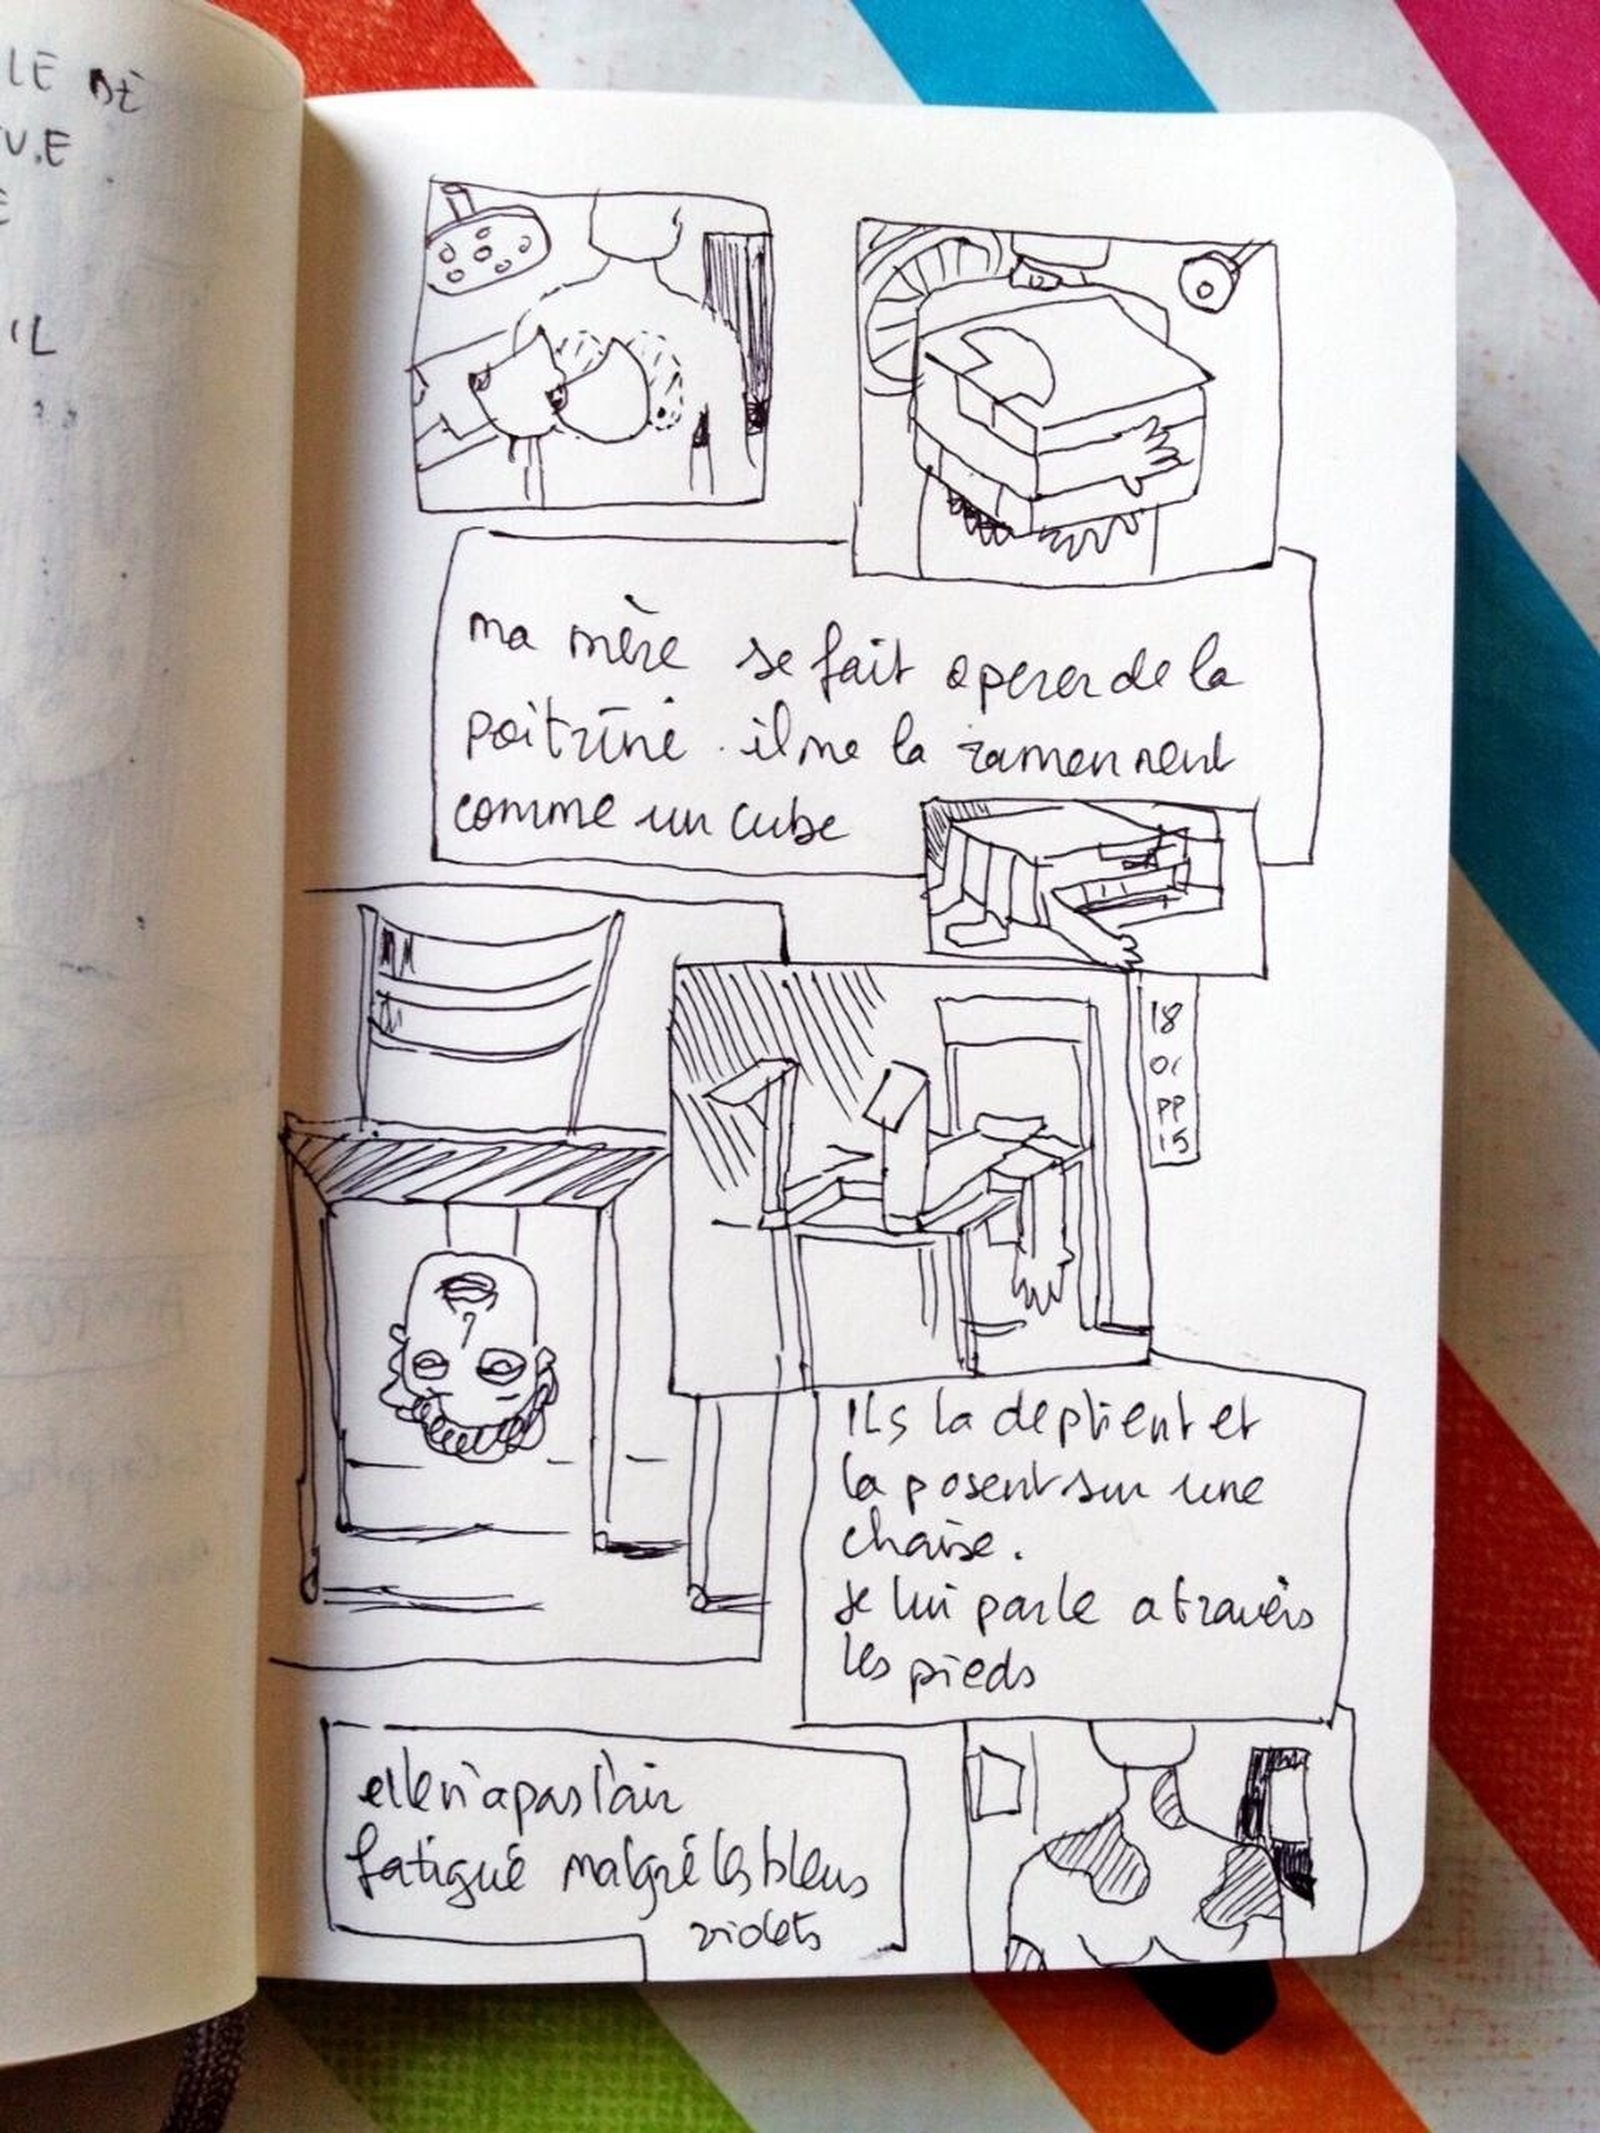 LE DE
IL
ma mère se fait operer de la
poitrine. il me la ramennent
comme un cube
18
PP
15
ILs la deplient et
la posent sur une
chaise.
Je lui parle a travers
les pieds
elle n'a pas l'air
fatigué malgré les bleus
violets